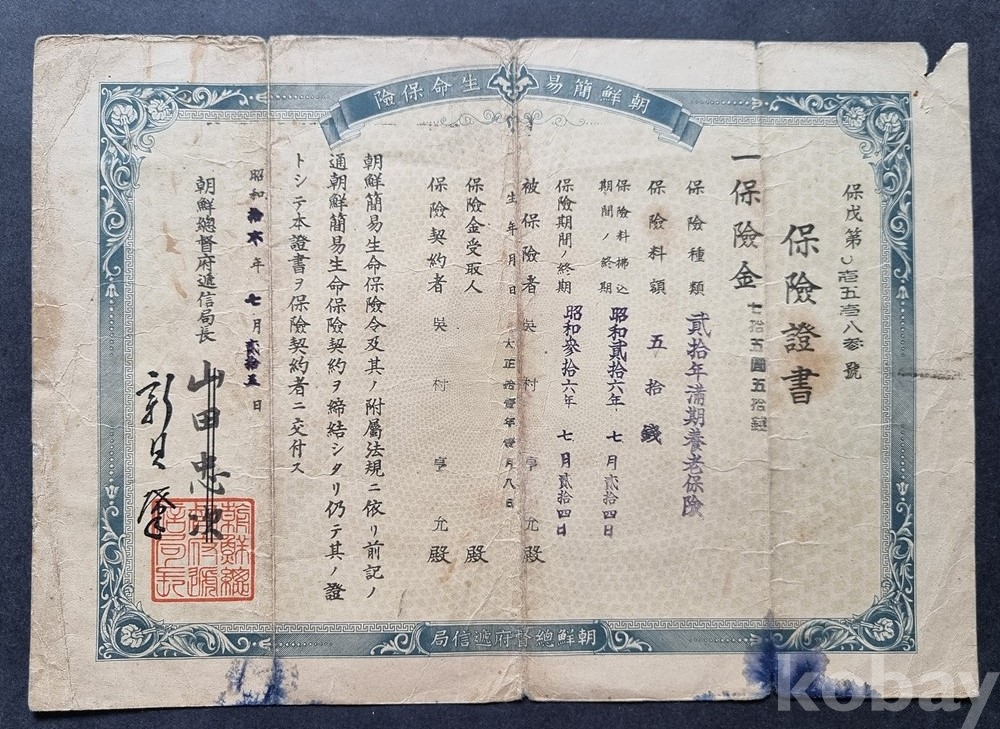 朝鮮簡易生命保險
保戊第〇壱五壱八参號
保險證書
一保險金 七拾五圓五拾錢
保險種類 貳拾年満期養老保險
保險料額 五拾錢
保險料拂込期間ノ終期 昭和貳拾六年 七月貳拾四日
保險期間ノ終期 昭和參拾六年 七月貳拾四日
被保險者 吳村亨允殿
生年月日 大正拾壹年壹月八日
保險金受取人 殿
保險契約者 吳村亨允殿
朝鮮簡易生命保險令及其ノ附屬法規ニ依リ前記ノ
通朝鮮簡易生命保險契約ヲ締結シタリ仍テ其ノ證
トシテ本證書ヲ保險契約者ニ交付ス
昭和拾六年 七月貳拾五日
朝鮮總督府遞信局長 山田忠次
新貝肇
朝鮮總督府遞信局長
朝鮮總督府遞信局
kobay